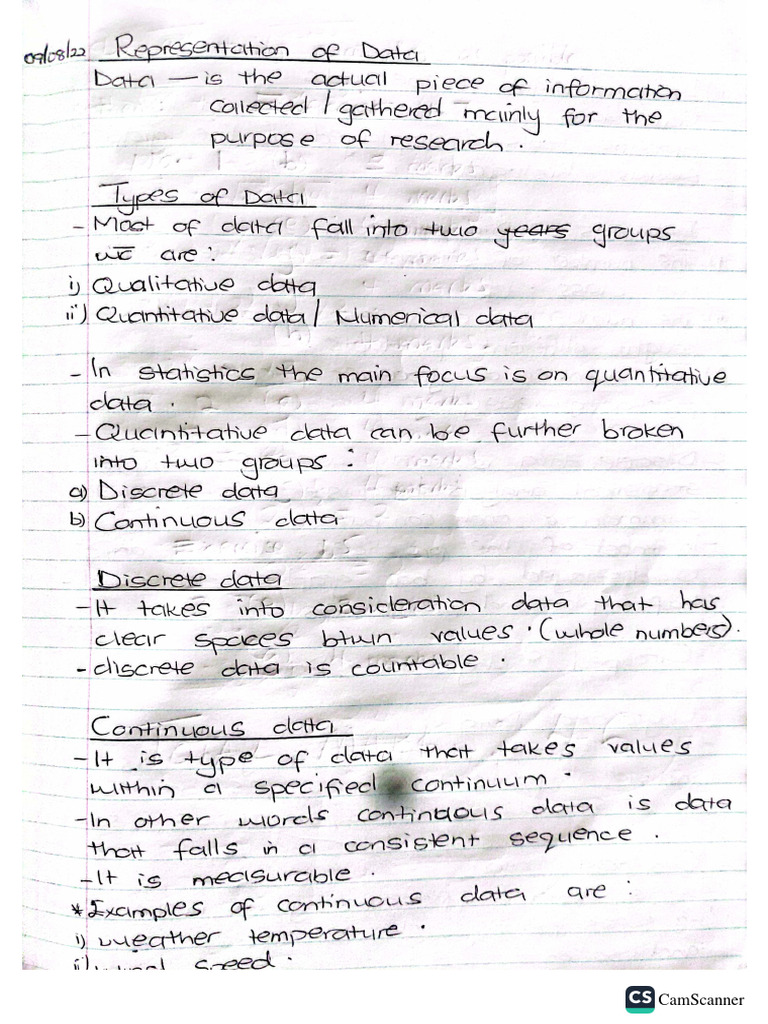 09/08/22 Representation of Data
Data — is the actual piece of information
collected / gathered mainly for the
purpose of research.
Types of Data
- Most of data fall into two years groups
wc are:
i) Qualitative data
ii) Quantitative data / Numerical data
- In statistics the main focus is on quantitative
data.
- Quantitative data can be further broken
into two groups:
a) Discrete data
b) Continuous data
Discrete data
- It takes into consideration data that has
clear spaces btwn values. (whole numbers).
- discrete data is countable.
Continuous data
- It is type of data that takes values
within a specified continuum.
- In other words continuous data is data
that falls in a consistent sequence.
- It is measurable.
* Examples of continuous data are:
i) weather temperature.
ii) speed.
CS CamScanner